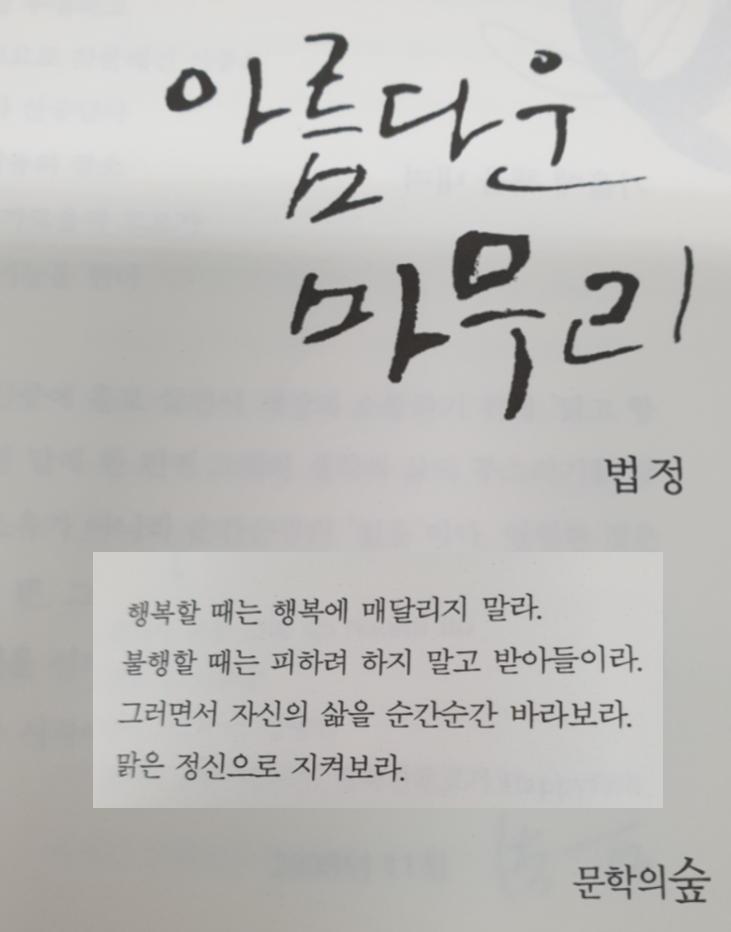 아름다운
마무리
법정
행복할 때는 행복에 매달리지 말라.
불행할 때는 피하려 하지 말고 받아들이라.
그러면서 자신의 삶을 순간순간 바라보라.
맑은 정신으로 지켜보라.
문학의숲